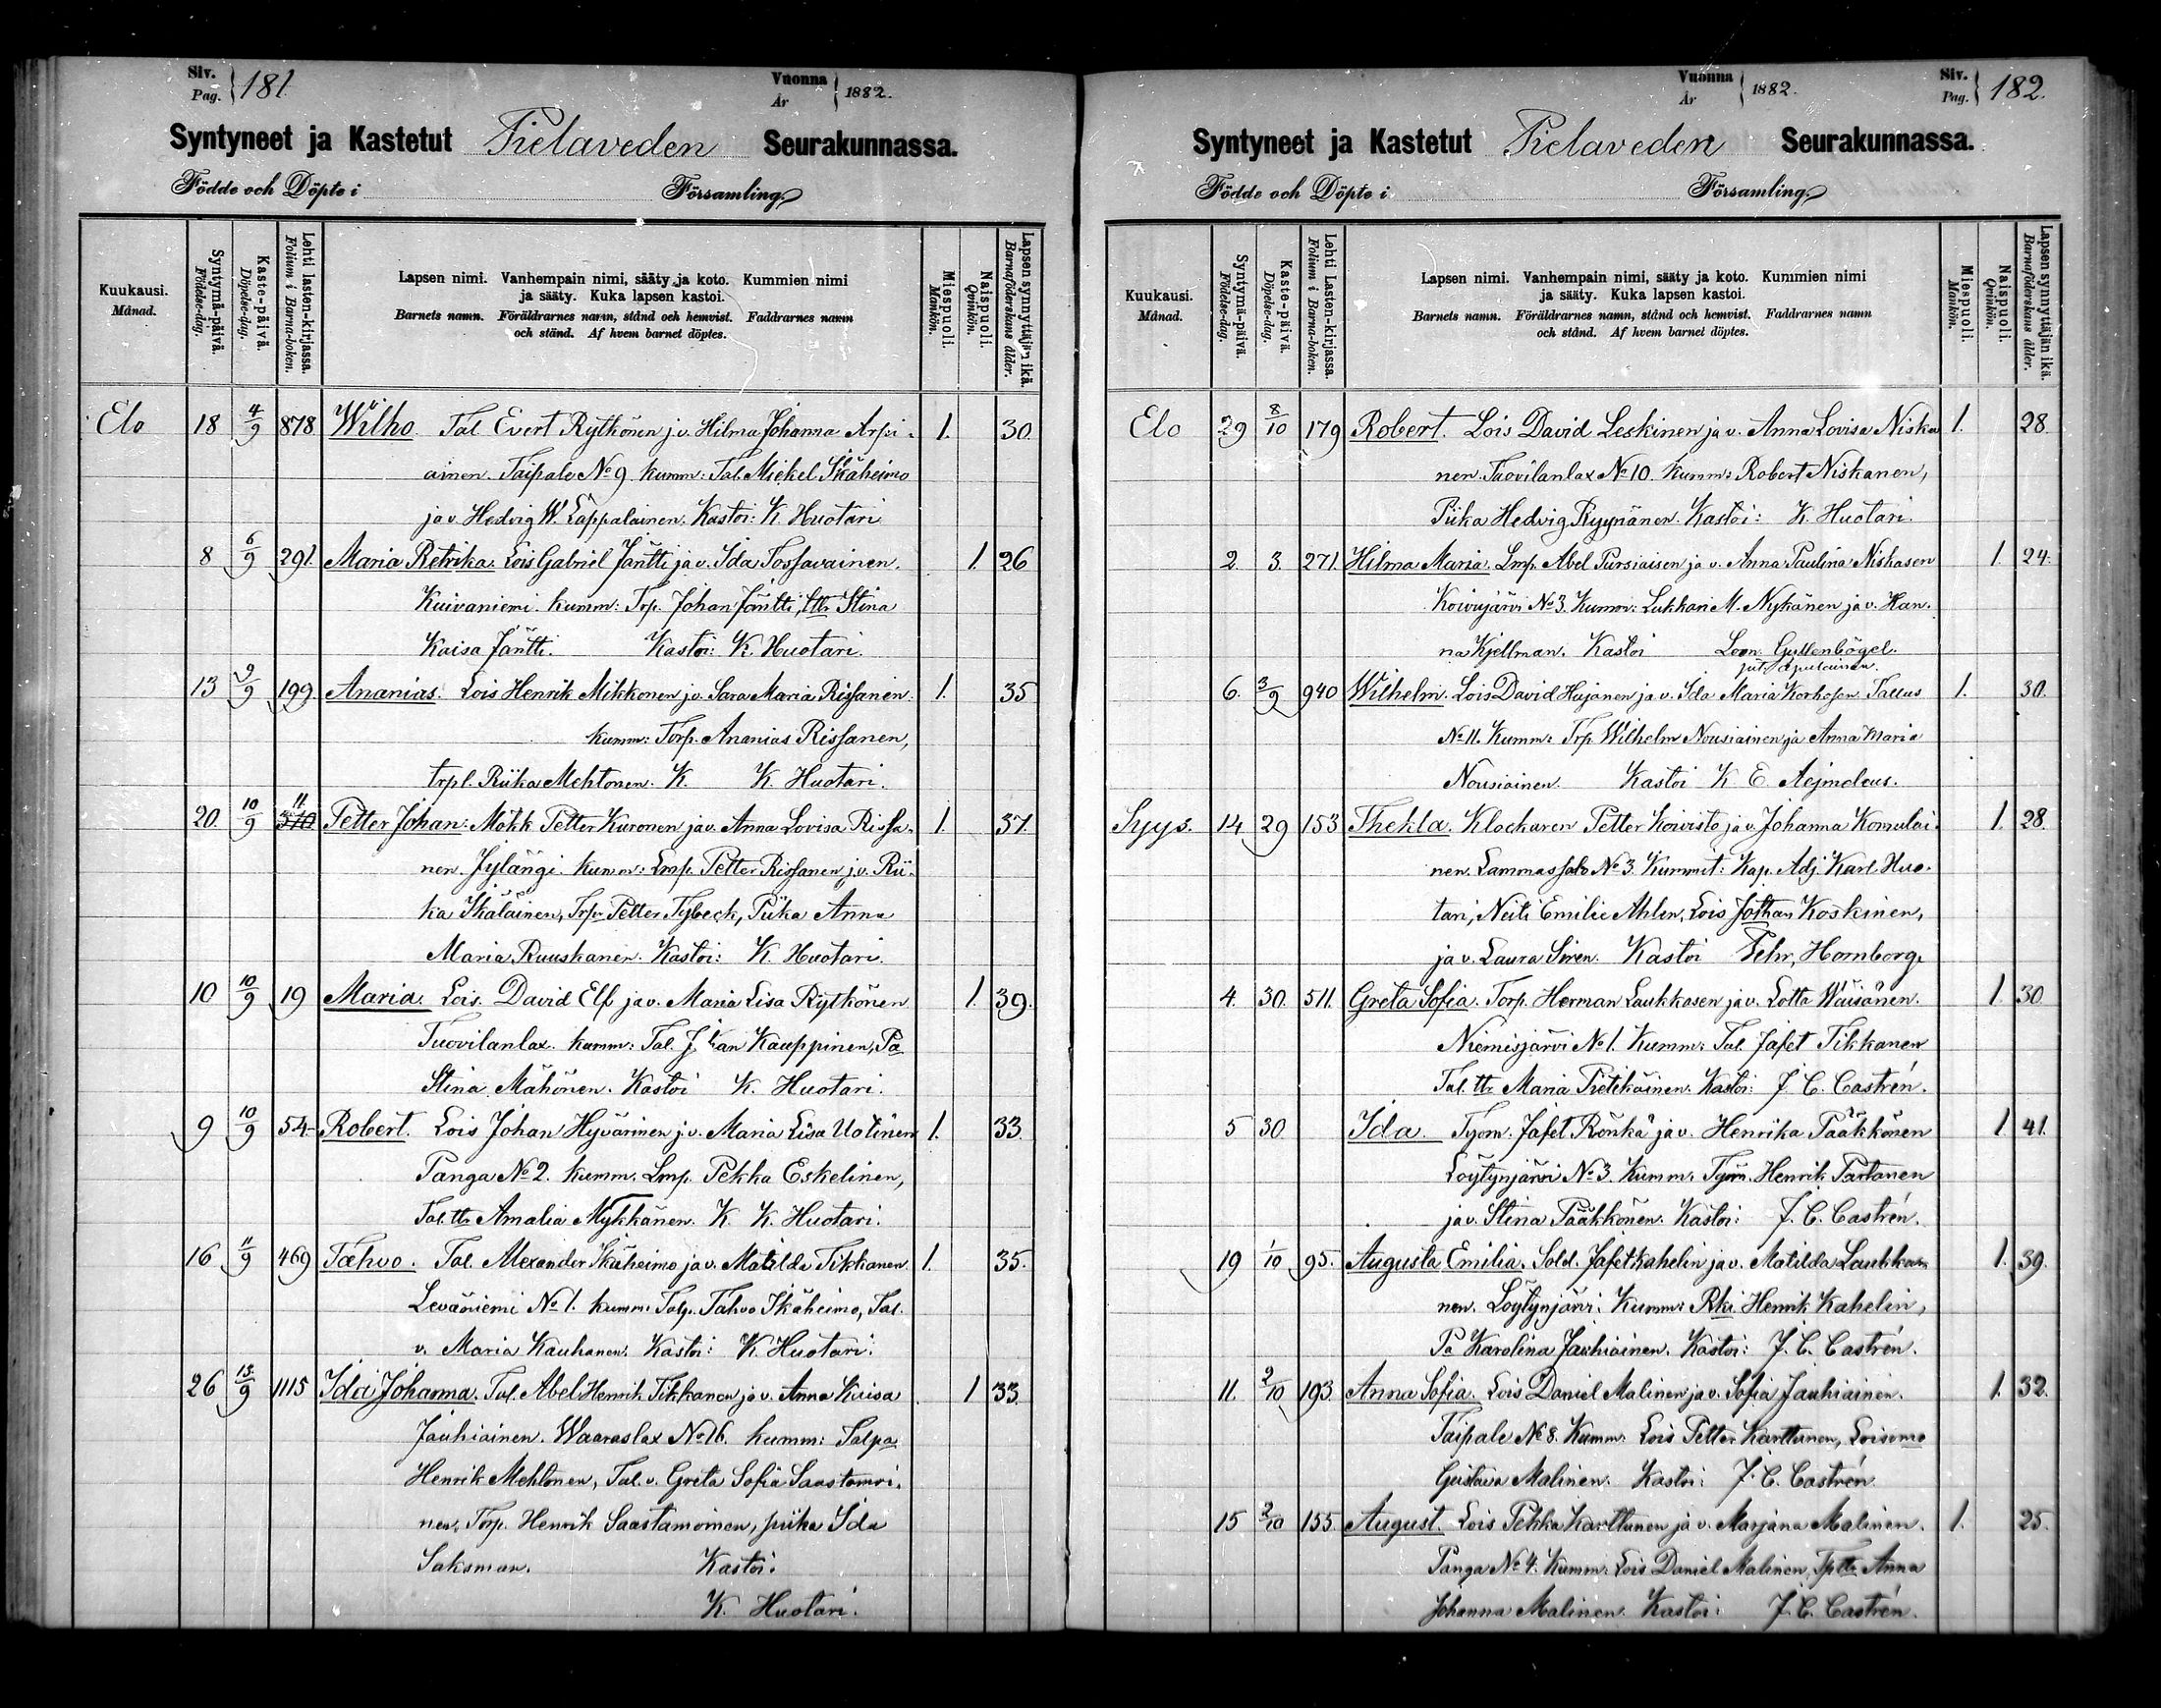 Siv. Pag. 181. Vuonna År 1882.
Syntyneet ja Kastetut Pielaveden Seurakunnassa.
Födde och Döpte i Församling.
Kuukausi. Månad.
Syntymä-päivä. Födelse-dag.
Kaste-päivä. Döpelse-dag.
Lehti lasten-kirjassa. Folium i Barna-boken.
Lapsen nimi. Vanhempain nimi, sääty ja koto. Kummien nimi
ja sääty. Kuka lapsen kastoi.
Barnets namn. Föräldrarnes namn, stånd och hemvist. Faddrarnes namn
och stånd. Af hvem barnet döptes.
Miespuoli. Mankön.
Naispuoli. Qvinkön.
Lapsen synnyttäjän ikä. Barnaföderskans ålder.
Elo 18 4/9 878 Wilho Tal. Evert Rytkönen j.v. Hilma Johanna Arpi- 1. 30.
ainen. Taipale No 9. kumm: Tal. Mickel Ikäheimo
ja v. Hedvig W. Lappalainen. Kastoi: K. Huotari
8 6/9 291. Maria Retrika. Lois Gabriel Jäntti ja v. Ida Tossavainen. 1. 26
Kuivaniemi. kumm: Trp. Johan Jäntti, ttr Stina
Kaisa Jäntti. Kastoi: K. Huotari.
13 9/9 199. Ananias. Lois Henrik Mikkonen j.v. Sara Maria Rissanen. 1. 35
kumm: Torp. Ananias Rissanen,
trpl. Riika Mehtonen. K. K. Huotari.
20. 10/9 11 370 Petter Johan: Mökk Petter Kuronen ja v. Anna Lovisa Rissa- 1. 37.
nen. Jylängi. kumm: Lmp. Petter Rissanen j.v. Rii-
ka Ikäläinen, Trp Petter Tybeck, Piika Anna
Maria Ruuskanen. Kastoi: K. Huotari.
10 10/9 19 Maria. Lois. David Elf ja v. Maria Lisa Rytkönen 1. 39.
Tuovilanlax. kumm: Tal. Johan Kauppinen, Pa
Stina Mähönen. Kastoi K. Huotari.
9 10/9 54 Robert. Lois Johan Hyvärinen j.v. Maria Lisa Uotinen 1. 33.
Panga No 2. kumm. Lmp. Pekka Eskelinen,
Tal. ttr Amalia Mykkänen. K. K. Huotari.
16 11/9 469 Tahvo. Tal. Alexander Ikäheimo ja v. Matilda Tikkanen 1. 35.
Leväniemi No 1. kumm: Talp. Tahvo Ikäheimo, Tal.
v. Maria Kauhanen. Kastoi: K. Huotari.
26 13/9 1115 Ida Johanna. Tal. Abel Henrik Tikkanen ja v. Anna Kaisa 1 33.
Jauhiainen. Waaraslax No 16. kumm: Talpa
Henrik Mehtonen, Tal. v. Greta Sofia Saastamoi-
nen, Torp. Henrik Saastamoinen, piika Ida
Saksman. Kastoi:
K. Huotari.
Vuonna År 1882. Siv. Pag. 182.
Syntyneet ja Kastetut Pielaveden Seurakunnassa.
Födde och Döpte i Församling.
Kuukausi. Månad.
Syntymä-päivä. Födelse-dag.
Kaste-päivä. Döpelse-dag.
Lehti Lasten-kirjassa. Folium i Barna-boken.
Lapsen nimi. Vanhempain nimi, sääty ja koto. Kummien nimi
ja sääty. Kuka lapsen kastoi.
Barnets namn. Föräldrarnes namn, stånd och hemvist. Faddrarnes namn
och stånd. Af hvem barnet döptes.
Miespuoli. Mankön.
Naispuoli. Qvinkön.
Lapsen synnyttäjän ikä. Barnaföderskans ålder.
Elo 29 8/10 179 Robert. Lois David Leskinen ja v. Anna Lovisa Niska 1. 28.
nen. Tuovilanlax No 10. Kumm: Robert Niskanen,
Piika Hedvig Ryynänen. Kastoi: K. Huotari.
2. 3. 271. Hilma Maria. Lmp. Abel Pursiaisen ja v. Anna Paulina Niskasen 1. 24.
Koivujärvi No 3. Kumm: Lukkari M. Nykänen ja v. Han-
na Kjellman. Kastoi Leon. Gyllenbögel.
pit. apulainen.
6. 3/9 940 Wilhelm. Lois David Hujanen ja v. Ida Maria Korhosen Tallus 1. 30.
No 11. Kumm: Trp Wilhelm Nousiainen ja Anna Maria
Nousiainen. Kastoi K. E. Aejmelæus.
Syys. 14 29 153 Thekla. Klockaren Petter Koivisto ja v. Johanna Komulai- 1. 28.
nen. Lammassalo No 3. Kummit: Kap. Adj. Karl Huo-
tari, Neiti Emilie Ahlen, Lois Jothan Koskinen,
ja v. Laura Siren. Kastoi Fehr, Homborg.
4. 30. 511. Greta Sofia. Torp. Herman Laukkasen ja v. Lotta Wäisänen. 1. 30
Niemisjärvi No 1. Kumm: Tal. Jafet Tikkanen
Tal. ttr Maria Pietikäinen. Kastoi: J. C. Castrén.
5 30 Ida. Työm. Jafet Rönkä ja v. Henrika Pääkkönen 1. 41.
Löytynjärvi No 3. Kumm: Työm. Henrik Partanen
ja v. Stina Pääkkönen. Kastoi: J. C. Castrén.
19 1/10 95. Augusta Emilia. Sold. Jafet Kahelin ja v. Matilda Laukka- 1. 39.
nen. Löytynjärvi. Kumm: Rki Henrik Kahelin,
Pa Karolina Jauhiainen. Kastoi: J. C. Castrén.
11. 2/10 193 Anna Sofia. Lois Daniel Malinen ja v. Sofia Jauhiainen. 1. 32.
Taipale No 8. Kumm: Lois Petter Karttunen, Lois emo
Gustava Malinen. Kastoi: J. C. Castrén
15 2/10 155. August. Lois Pekka Karttunen ja v. Marjana Malinen. 1. 25.
Panga No 4. Kumm: Lois Daniel Malinen, Tpttr Anna
Johanna Malinen. Kastoi: J. C. Castrén.